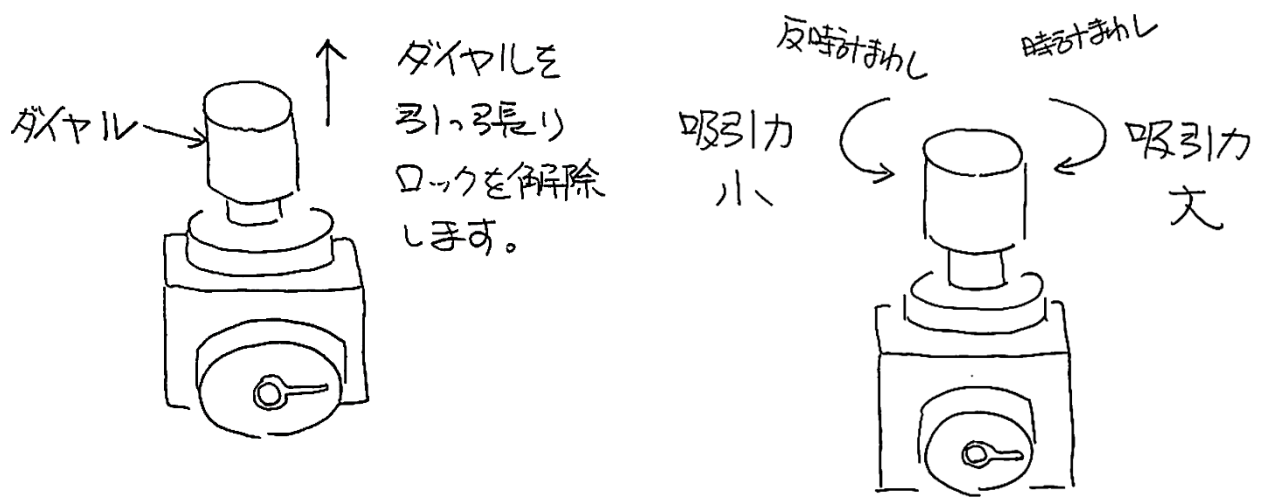 ダイヤル
ダイヤルを
引っ張り
ロックを解除
します。
反時計まわし
時計まわし
吸引力
小
吸引力
大